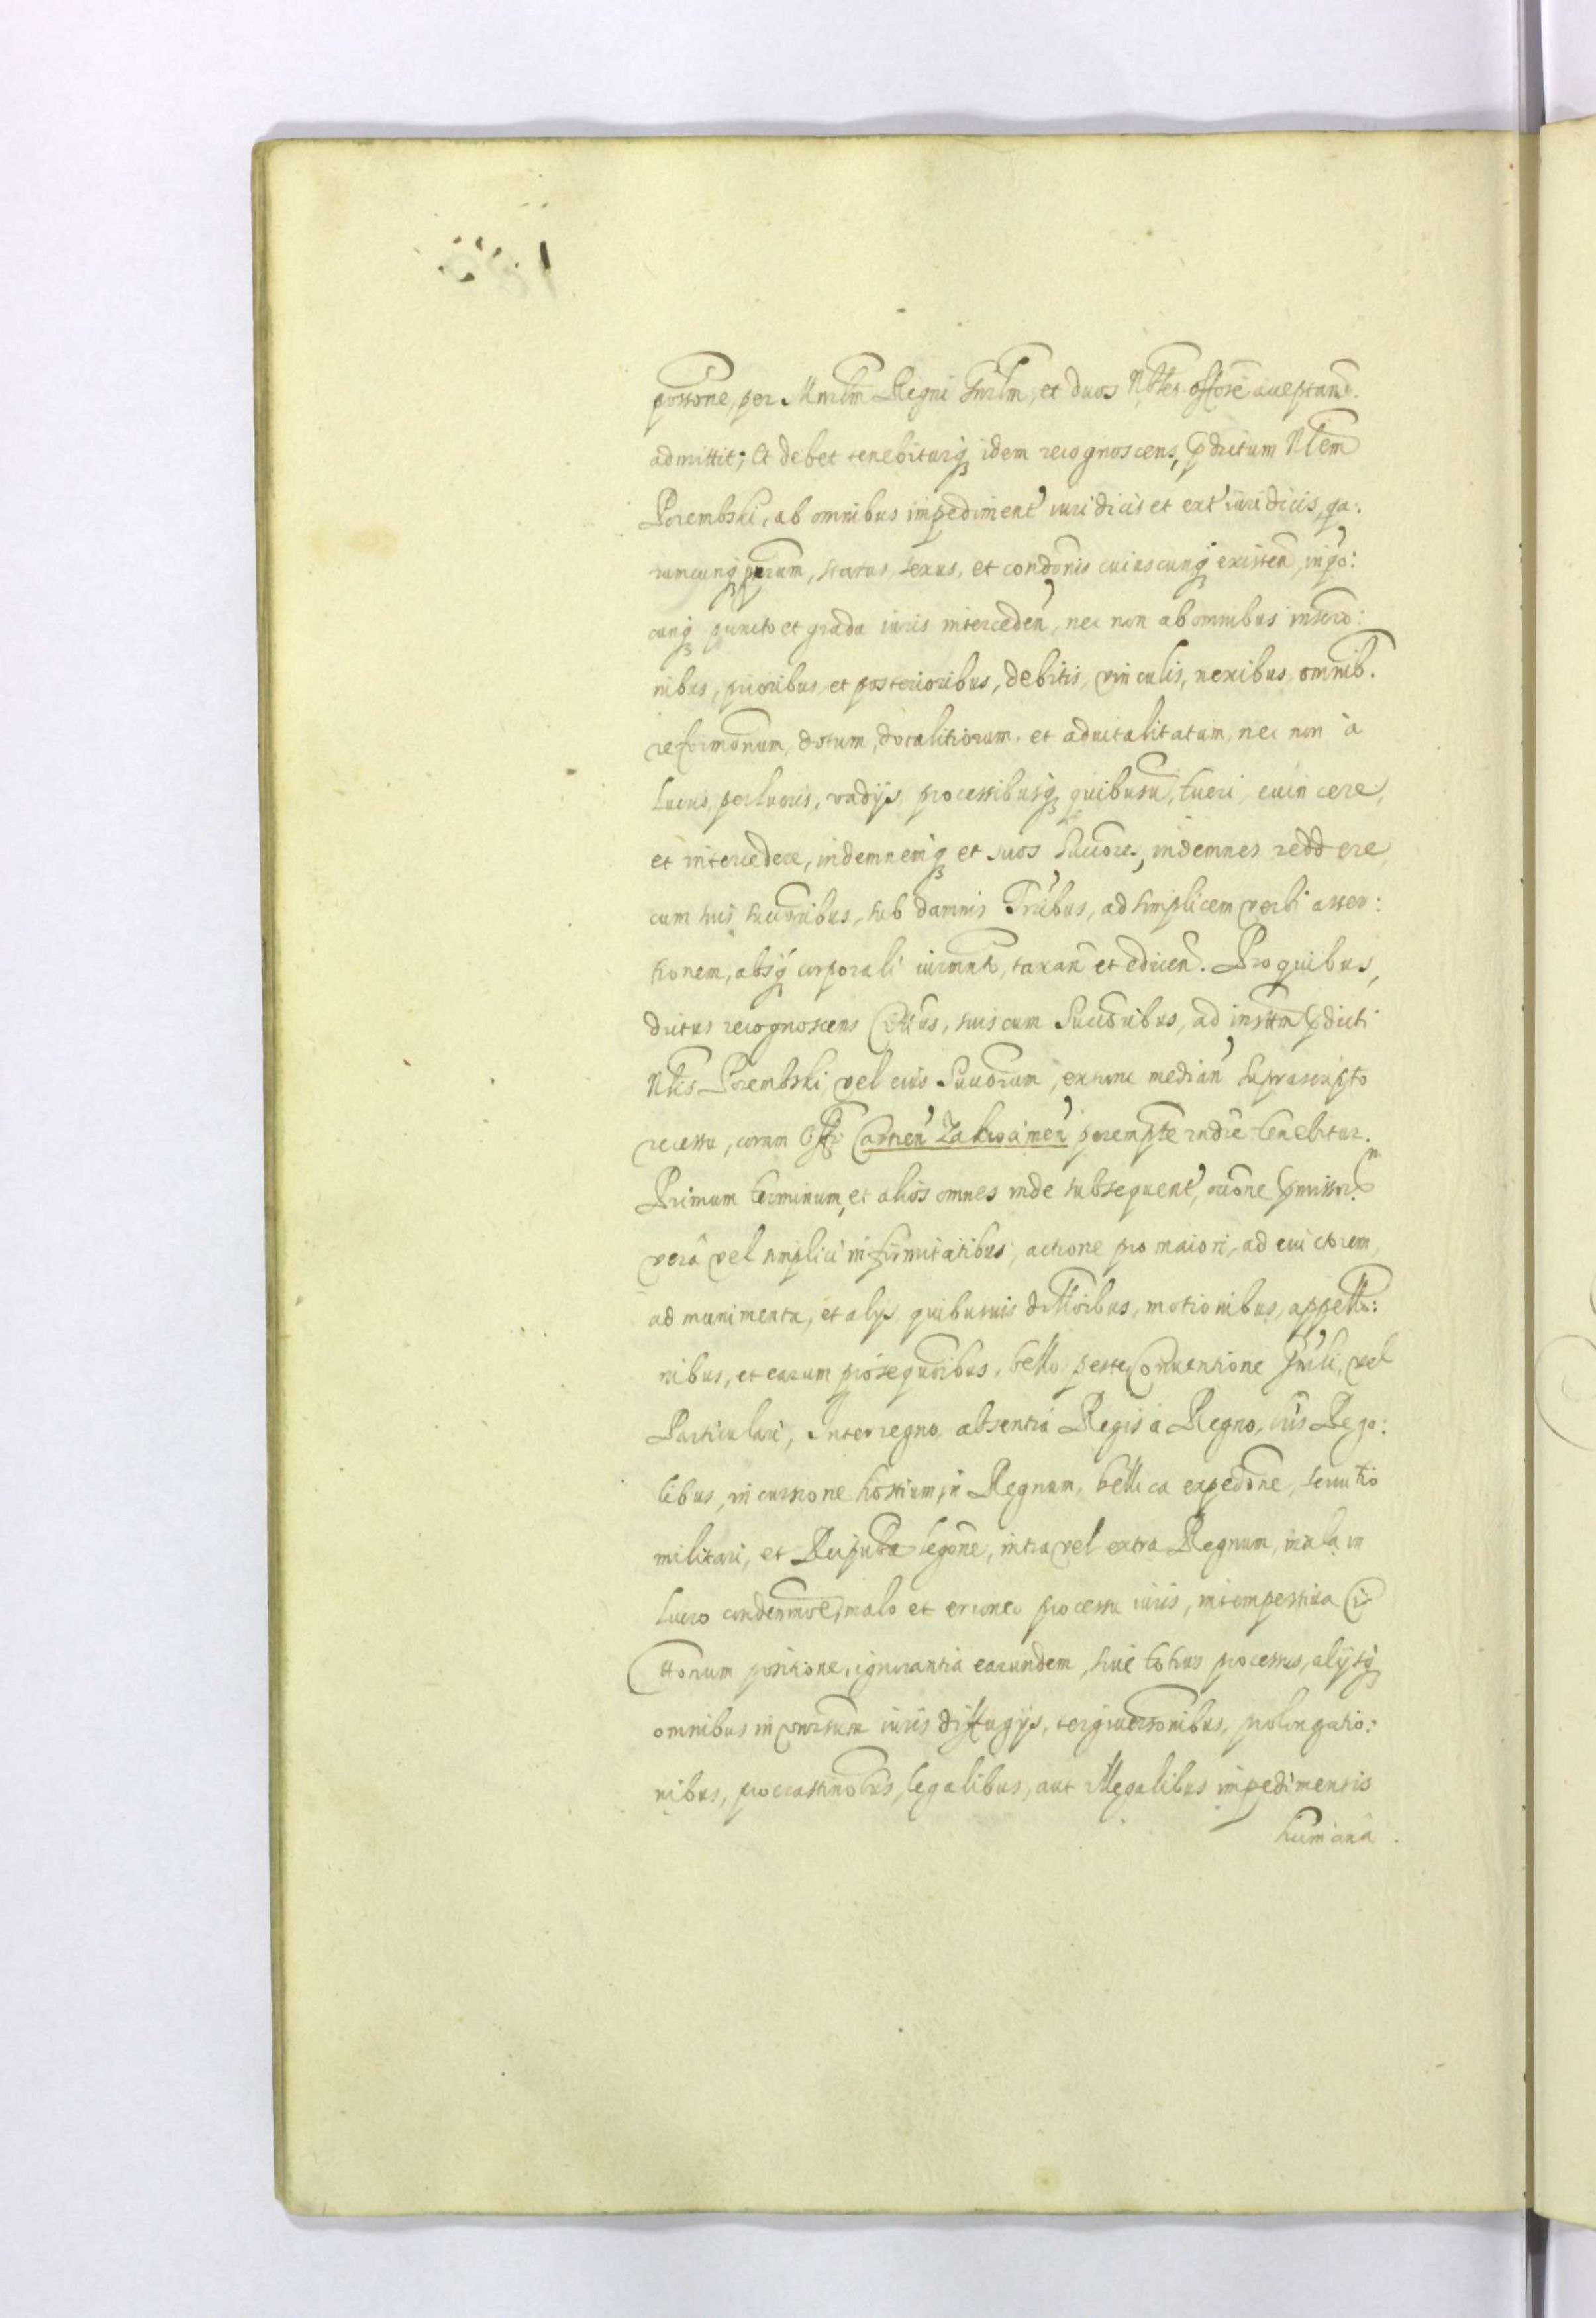 possone, per Mnrlm Regni Gnrlm, et duos Nbles offose acceptand.
admittit; Et debet tenebiturq idem recognoscens, pdictum Nlem
Porembski, ab omnibus impediment iuridicis et ext iuridicis, qa:
rumcunq prnum, status, sexus, et condonis cuiuscunq existen, in qo:
cunq puncto et gradu iuris interceden, nec non ab omnibus inscro:
nibus, prioribus et posterioribus, debitis, vinculis, nexibus, omnib.
reformonum, dotum, dotalitiorum, et aduitalitatum, nec non à
lucris, perlucris, vadijs, processibusq quibusuis, tueri, euincere,
et intercedere, indemnemq et suos Succores, indemnes reddere,
cum suis succoribus, sub damnis Tribus, ad simplicem verbi asser:
tionem, absq corporali iurmnto, taxan et edicen. Pro quibus,
dictus recognoscens Cittus, suis cum Succoribus, ad instam pdicti
Nlis Porembski, vel eius Succorum, ex tunc median suprascripto
recessu, coram Offo Castren Zakroâmen perempte indie tenebitur.
Primum terminum, et alios omnes inde subsequent, occone pmissor.
verâ vel simplici infirmitatibus, actione pro maiori, ad euictorem,
ad munimenta, et alys quibusuis dilloibus, motionibus, appello:
nibus, et earum prosequoibus, bello peste, Conuentione Gnrli, vel
Particulari, Interregno, absentia Regis à Regno, iuis Rega:
libus, incursione hostium in Regnum, bellica expedone, seruitio
militari, et Reipubca legone, intra vel extra Regnum, mala in
lucro condemnoe, malo et erroneo processu iuris, intempestiua Ci
ttonum positione, ignorantia earundem, siue totius processus, alijsq
omnibus in vniuersum iuris diffugijs, tergiuersonibus, prolongatio:
nibus, procrastinobus, legalibus, aut illegalibus impedimentis
humana